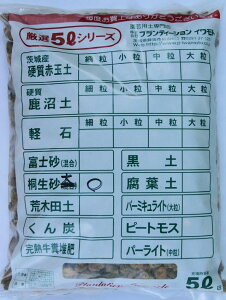 毎度お買上げありがとうございます
厳選5ℓシリーズ
園芸用土専門店
プランテーションイワモト
茨城産
硬質赤玉土 細粒 小粒 中粒 大粒
硬質
鹿沼土 細粒 小粒 中粒 大粒
軽石 小粒 中粒 大粒
富士砂(混合) 黒土
桐生砂 ○ 腐葉土
荒木田土 バーミキュライト(大粒)
くん炭 ピートモス
完熟牛糞堆肥 パーライト(中粒)
5ℓ